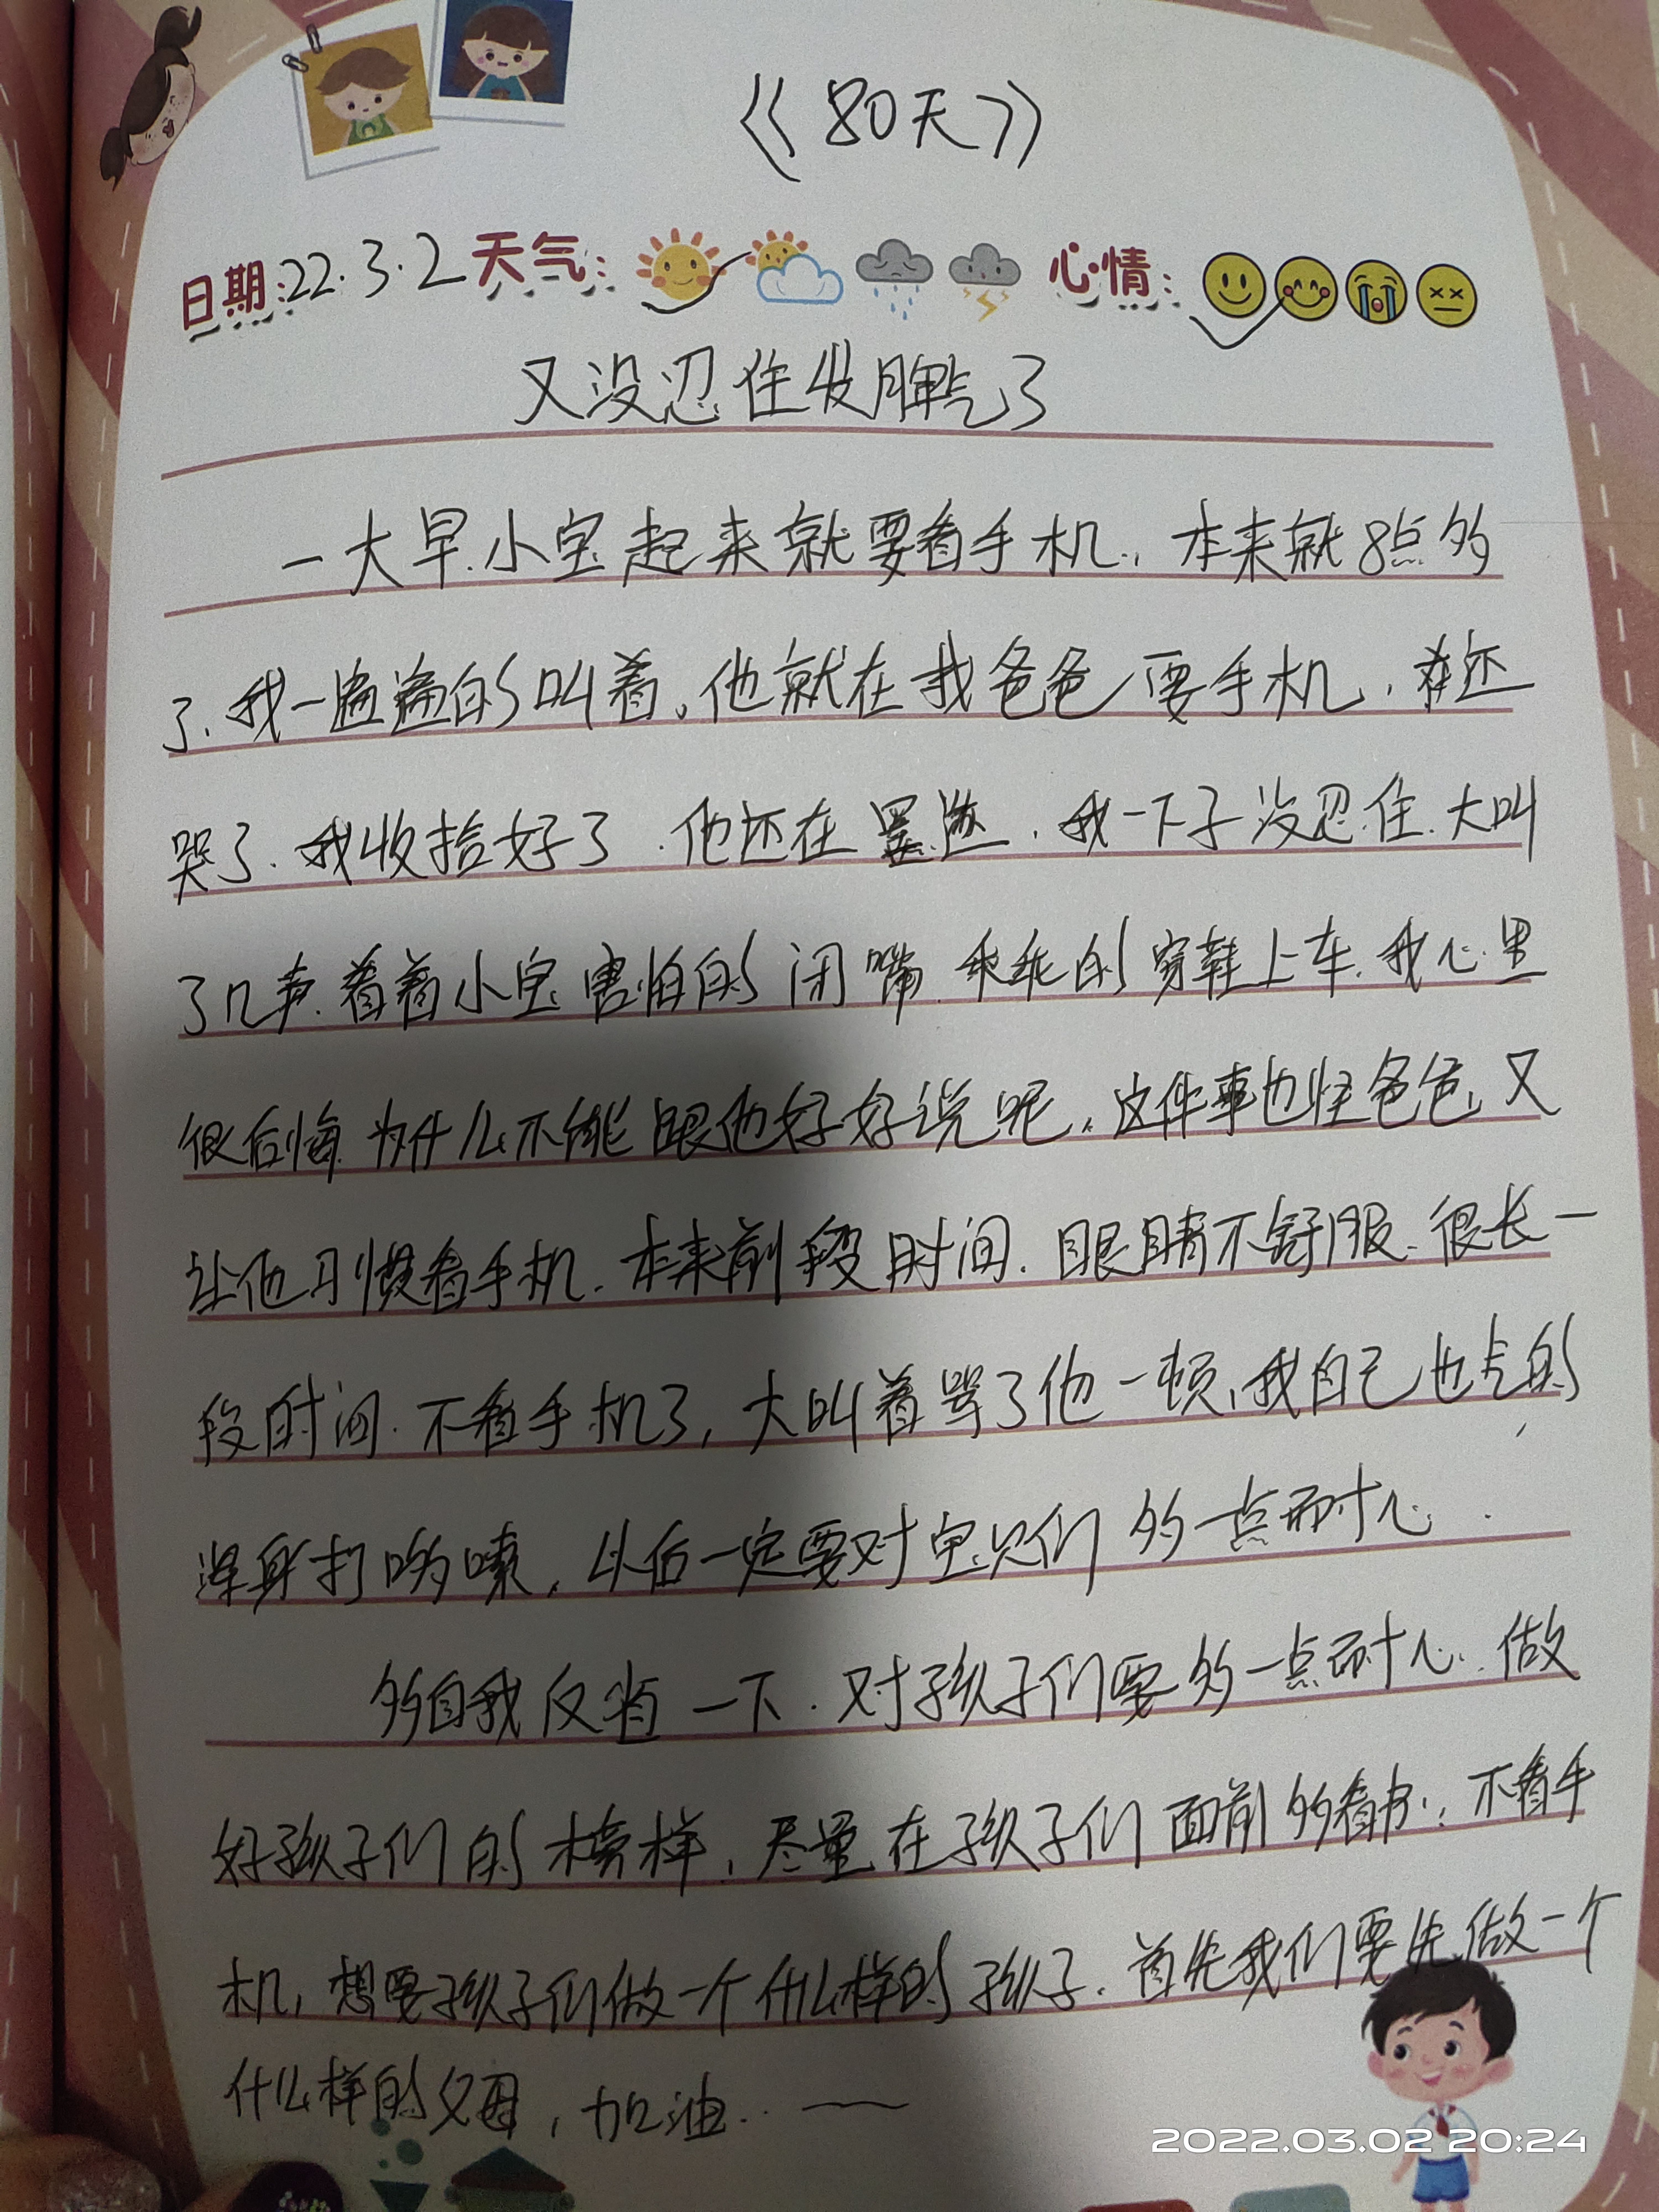 《80天》
日期:22.3.2天气: 心情:
又没忍住发脾气了
一大早.小宝起来就要看手机.,本来就8点多
了.我一遍遍的叫着。他就在我爸爸要手机,还
哭了.我收拾好了.他还在墨迹.我一下子没忍住.大叫
了几声.看着小宝害怕的闭嘴.乖乖的穿鞋上车.我心里
很后悔.为什么不能跟他好好说呢。这件事也怪爸爸,又
让他习惯看手机.本来前段时间.眼睛不舒服.很长一
段时间.不看手机了,大叫着骂了他一顿,我自己也气的
浑身打哆嗦,以后一定要对宝贝们多一点耐心.
多自我反省一下.对孩子们要多一点耐心.做
好孩子们的榜样.尽量在孩子们面前多看书.,不看手
机,想要孩子们做一个什么样的孩子.首先我们要先做一个
什么样的父母,加油..——
2022.03.02 20:24